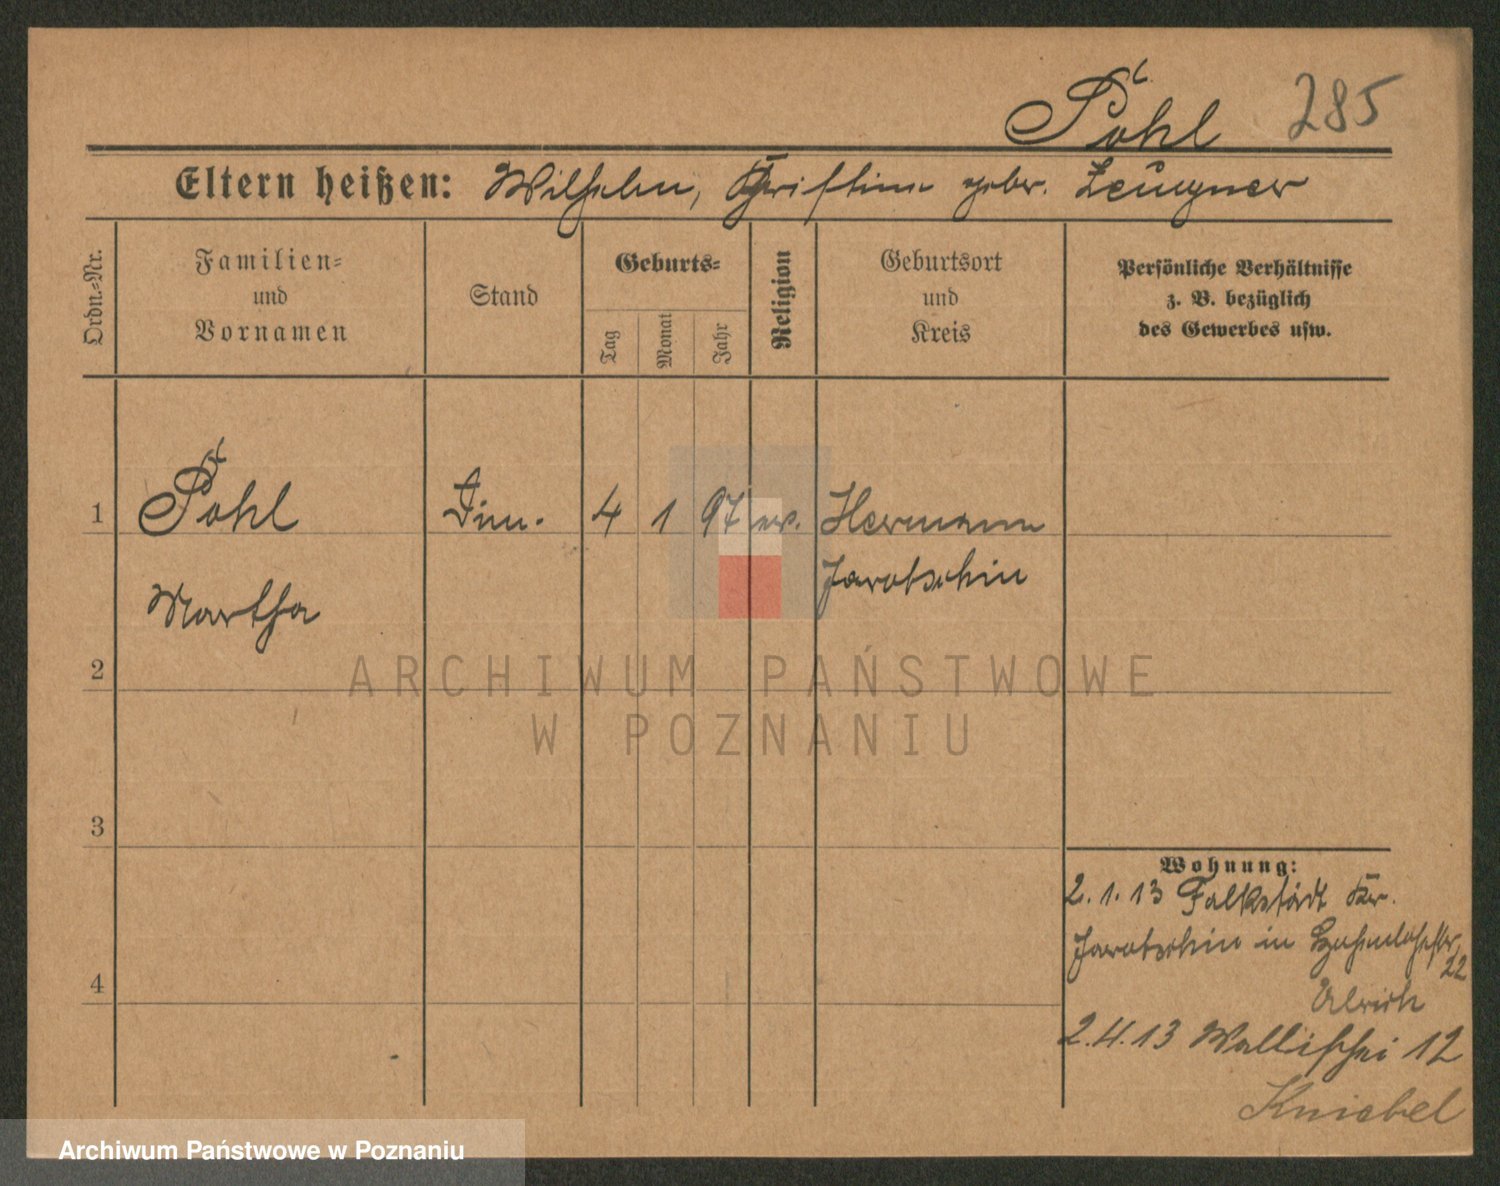 Pohl 285
Eltern heißen: Wilhelm, Christine gebr. Zeugner
Ordn.=Nr.
Familien=
und
Vornamen
Stand
Geburts=
Tag
Monat
Jahr
Religion
Geburtsort
und
Kreis
Persönliche Verhältnisse
z. B. bezüglich
des Gewerbes usw.
1 Pohl 4 1 97 ev. Hermann
Jarotschin
Martha
2
3
4
Wohnung:
2.1.13 Falkstädt Kr.
Jarotschin in 22
Ulrich
2.4.13 Wallischei 12
Kniebel
ARCHIWUM PAŃSTWOWE
W POZNANIU
Archiwum Państwowe w Poznaniu